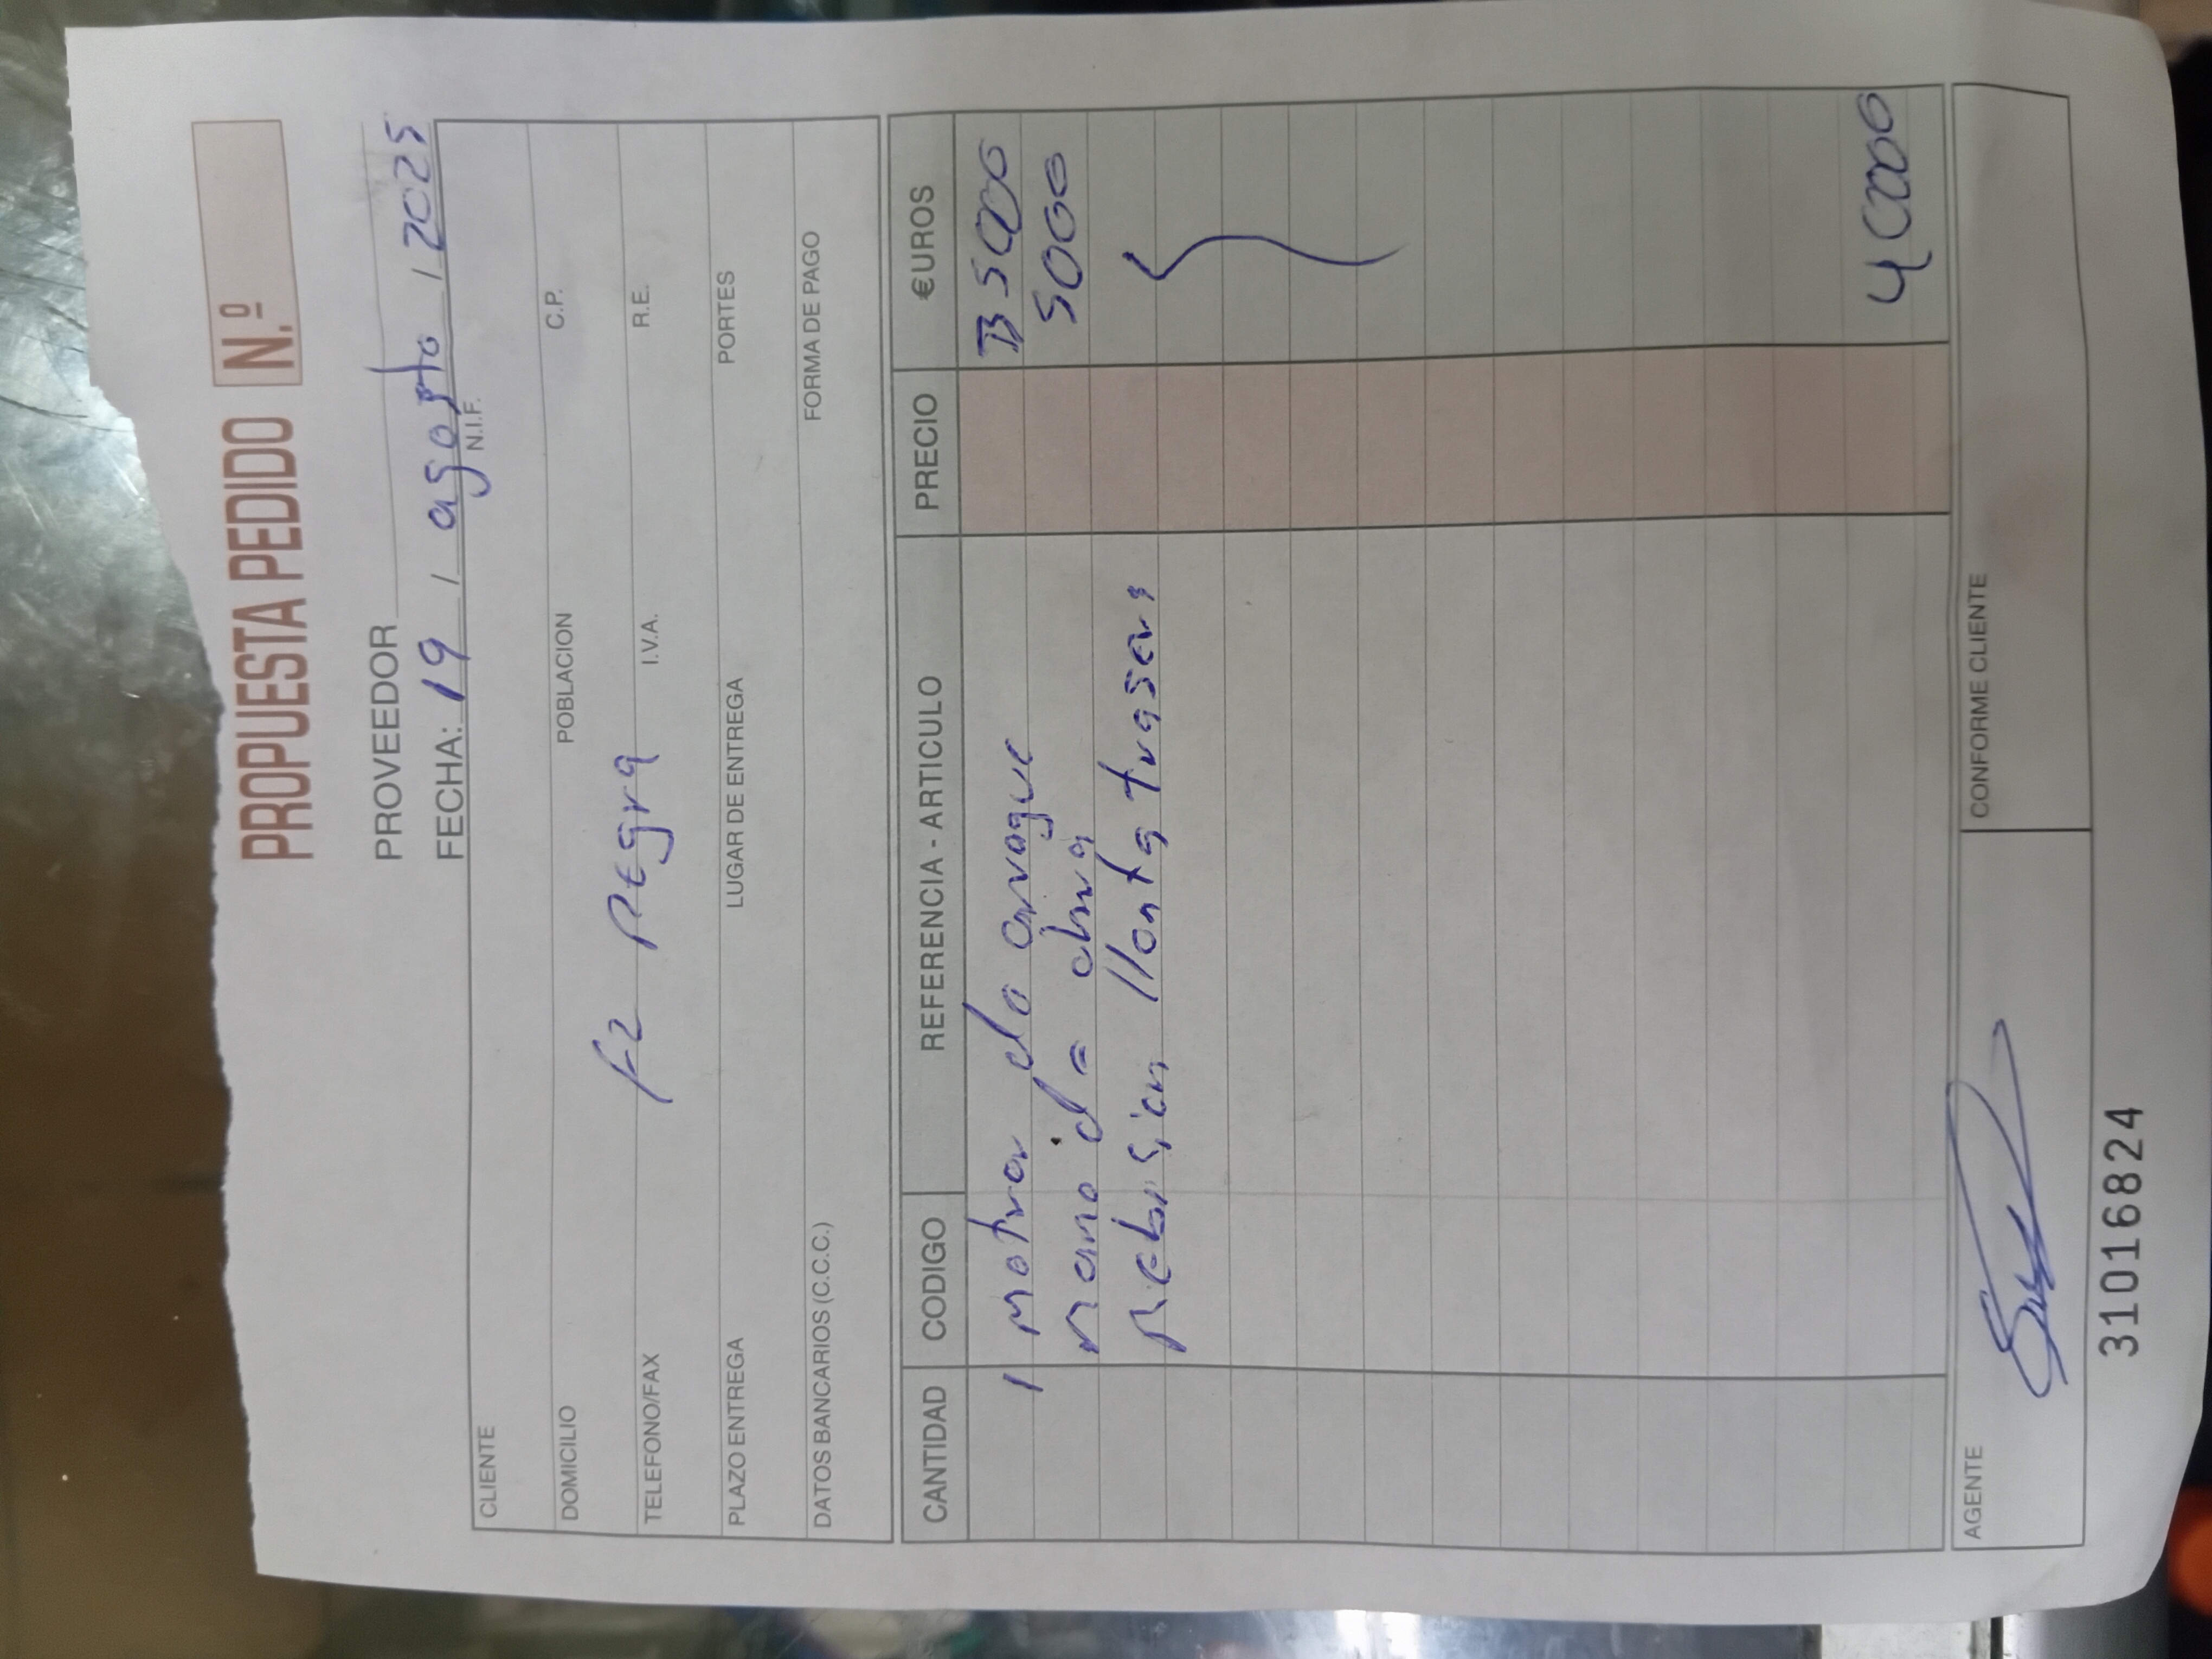 PROPUESTA PEDIDO N.º
PROVEEDOR
FECHA: 19 / agosto / 2025
CLIENTE N.I.F.
DOMICILIO POBLACION C.P.
TELEFONO/FAX I.V.A. R.E.
PLAZO ENTREGA LUGAR DE ENTREGA PORTES
DATOS BANCARIOS (C.C.C.) FORMA DE PAGO
CANTIDAD CODIGO REFERENCIA - ARTICULO PRECIO €UROS
1 motror do arraque 35000
mano de obra 5000
llanta trasera
40000
AGENTE CONFORME CLIENTE
31016824